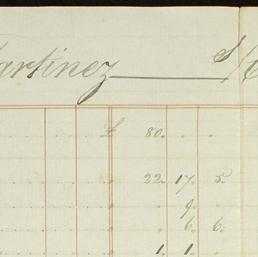 artinez S/C
£ 80. . .
22. 17. 5.
. 9. .
. 6. 6.
1. 1. .